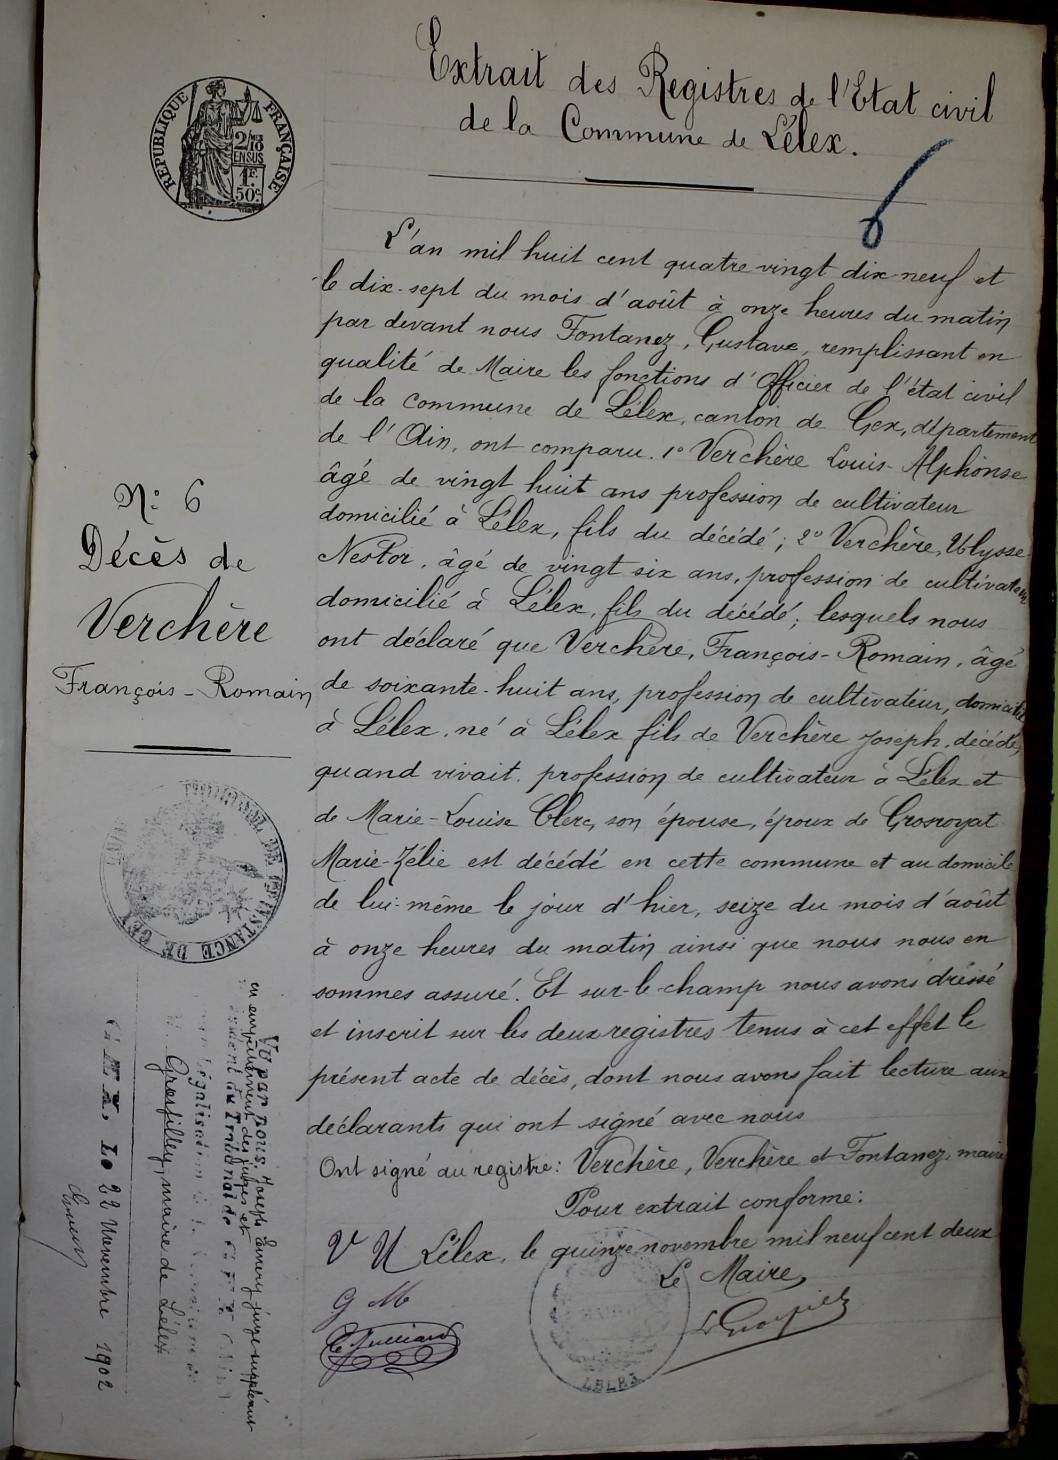 Extrait des Registres de l'Etat civil
de la Commune de Lélex.
RÉPUBLIQUE FRANÇAISE
2/10
EN SUS
1F.
50c.
6
L'an mil huit cent quatre-vingt dix-neuf et
le dix-sept du mois d'août à onze heures du matin
par devant nous Fontanez, Gustave, remplissant en
qualité de Maire les fonctions d'Officier de l'état civil
de la commune de Lélex, canton de Gex, département
de l'Ain, ont comparu. 1° Verchère Louis-Alphonse
âgé de vingt huit ans profession de cultivateur
domicilié à Lélex, fils du décédé; 2° Verchère, Ulysse-
Nestor, âgé de vingt six ans, profession de cultivateur
domicilié à Lélex, fils du décédé; lesquels nous
ont déclaré que Verchère, François-Romain, âgé
de soixante-huit ans, profession de cultivateur, domicilié
à Lélex, né à Lélex fils de Verchère Joseph, décédé,
quand vivait profession de cultivateur à Lélex et
de Marie-Louise Clerc, son épouse, époux de Grosroyat
Marie-Zélie est décédé en cette commune et au domicile
de lui-même le jour d'hier, seize du mois d'août
à onze heures du matin ainsi que nous nous en
sommes assuré. Et sur-le-champ nous avons dressé
et inscrit sur les deux registres tenus à cet effet le
présent acte de décès, dont nous avons fait lecture aux
déclarants qui ont signé avec nous
Ont signé au registre: Verchère, Verchère et Fontanez, maire
Pour extrait conforme:
V U Lélex, le quinze novembre mil neuf cent deux
Le Maire,
G M
LELEX
N° 6
Décès de
Verchère
François-Romain
DE GEX
INSTANCE DE
Vu par nous, Joseph Emery juge suppléant
en empêchement des juges et
du Tribunal de
légalisation
Grosfilley, maire de Lélex
Le 22 Novembre 1902